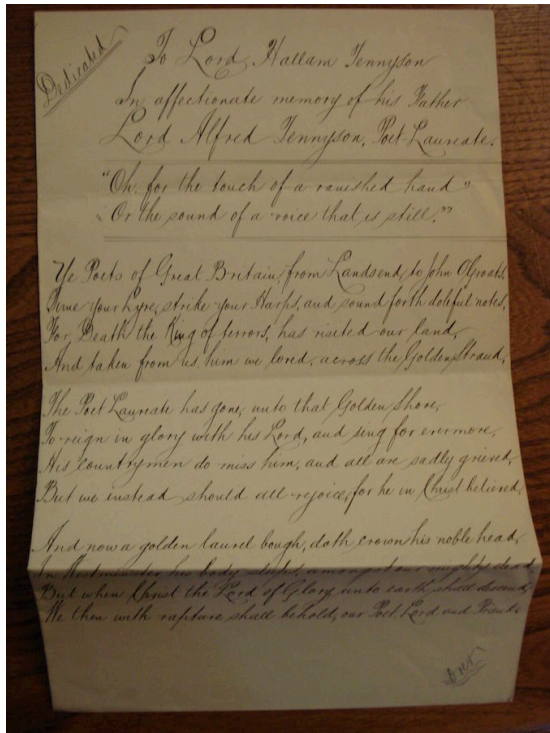 Dedicated
To Lord Hallam Tennyson
In affectionate memory of his Father
Lord Alfred Tennyson, Poet Laureate.
"Oh. for the touch of a vanished hand"
Or the sound of a voice that is still."
Ye Poets of Great Britain, from Landsend, to John O'Groats,
Tune your Lyre, strike your Harps, and sound forth doleful notes,
For, Death the King of terrors, has visited our land,
And taken from us him we loved, across the Golden Strand,
The Poet Laureate has gone, unto that Golden Shore,
To reign in glory with his Lord, and sing for evermore,
His countrymen do miss him, and all are sadly grieved,
But we instead should all rejoice, for he in Christ believed,
And now a golden laurel bough, doth crown his noble head,
In Westminster his body sleeps, amongst our mighty dead,
But when Christ the Lord of Glory unto earth shall descend,
We then with rapture shall behold, our Poet, Lord and